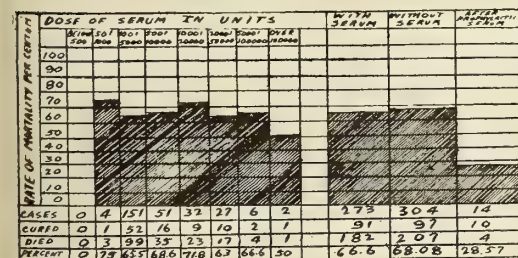 DOSE OF SERUM IN UNITS
WITH SERUM
WITHOUT SERUM
AFTER PROPHYLACTIC SERUM
BELOW 500
501 1000
1001 5000
5001 10000
10001 20000
20001 50000
50001 100000
OVER 100000
RATE OF MORTALITY PER CENTUM
100
90
80
70
60
50
40
30
20
10
0
CASES 0 4 151 51 32 27 6 2 273 304 14
CURED 0 1 52 16 9 10 2 1 91 97 10
DIED 0 3 99 35 23 17 4 1 182 207 4
PERCENT 0 75 65.5 68.6 71.8 63 66.6 50 66.6 68.08 28.57